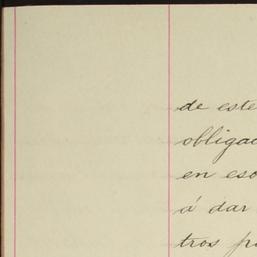 de este
obligac
en eso
á dar
tros pa